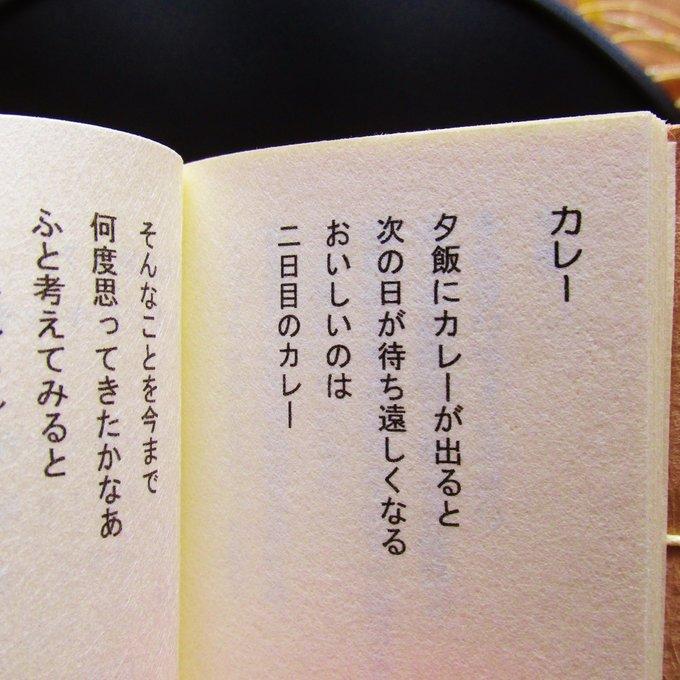 カレー
夕飯にカレーが出ると
次の日が待ち遠しくなる
おいしいのは
二日目のカレー
そんなことを今まで
何度思ってきたかなあ
ふと考えてみると